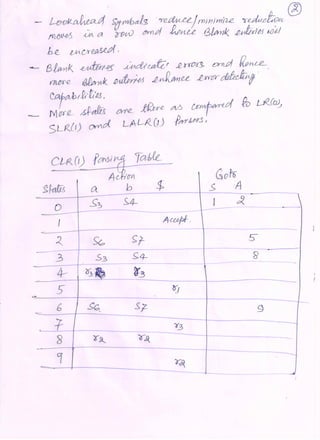 ②
- Lookahead Symbols reduce/minimize reduction
moves in a row and hence Blank entries will
be encreased.
- Blank entries indicate errors and hence
more Blank entries enhance error detecting
capabilities.
- More states are there as compared to LR(0),
SLR(1) and LALR(1) Parsers.
CLR(1) Parsing Table
Action Goto
States a b $ S A
0 S3 S4 1 2
1 Accept
2 S6 S7 5
3 S3 S4 8
4 r3 r3
5 r1
6 S6 S7 9
7 r3
8 r2 r2
9 r2